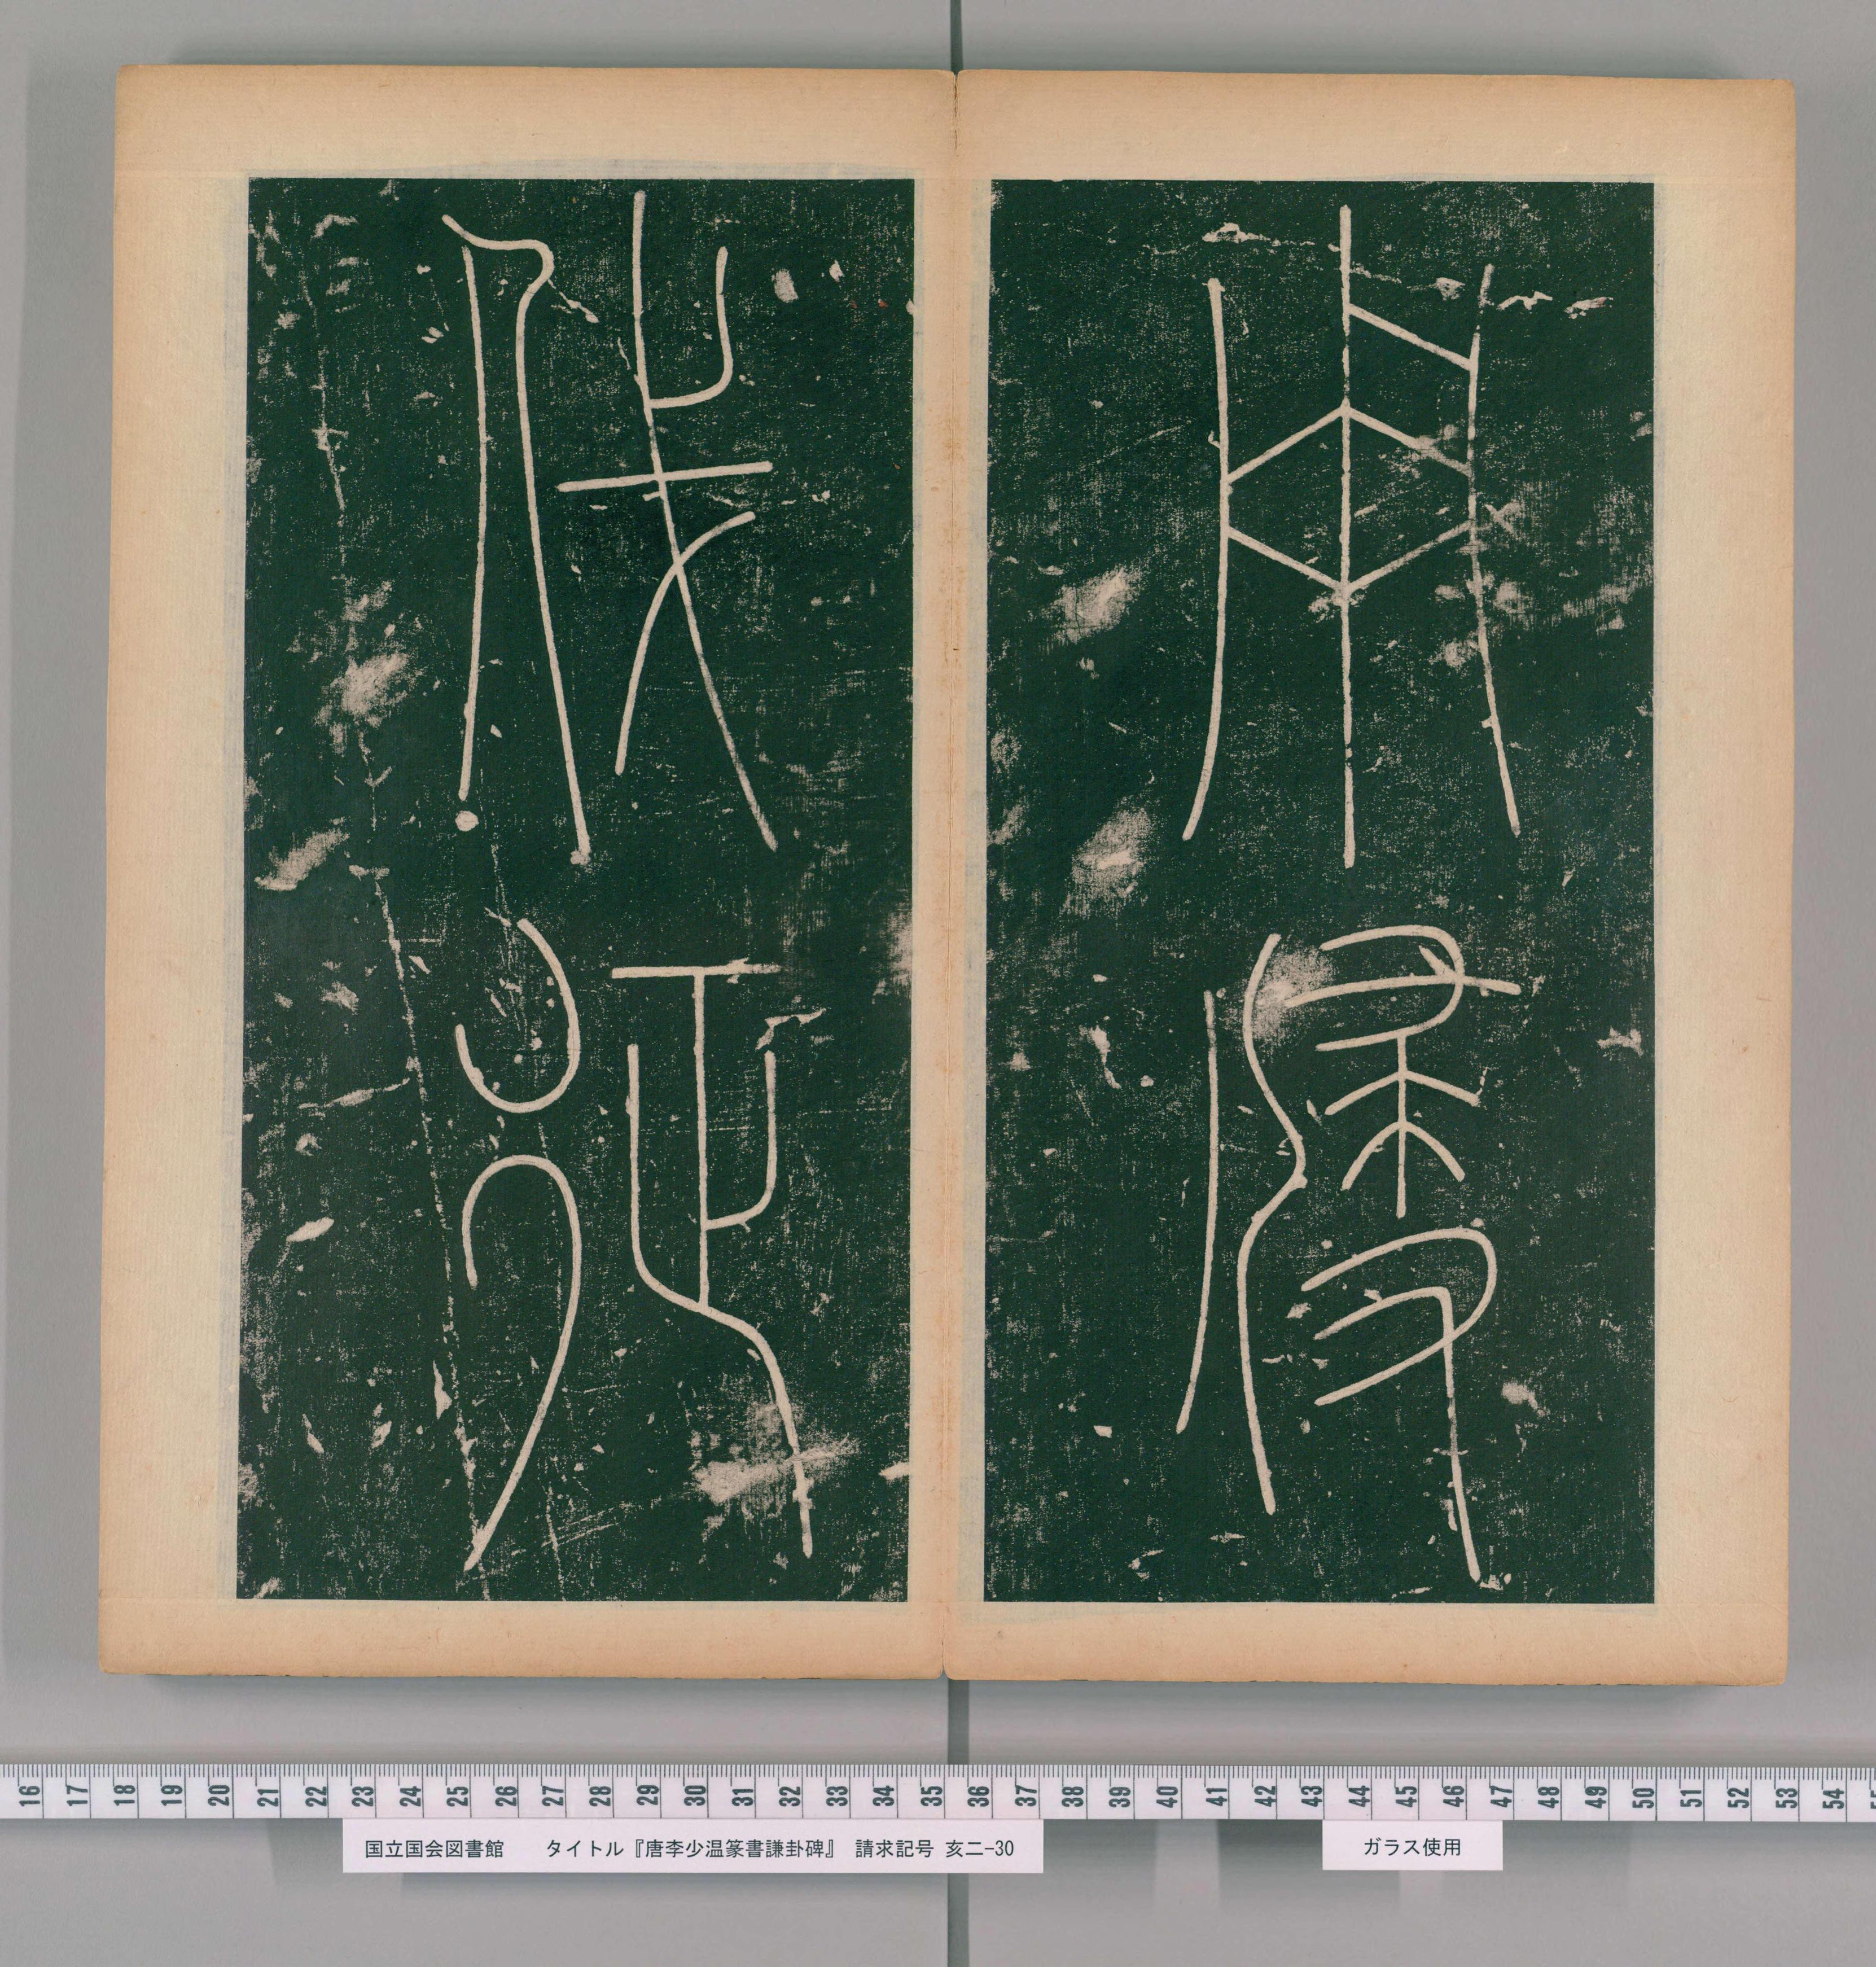 用侵
伐征
16 17 18 19 20 21 22 23 24 25 26 27 28 29 30 31 32 33 34 35 36 37 38 39 40 41 42 43 44 45 46 47 48 49 50 51 52 53 54
国立国会図書館　タイトル『唐李少温篆書謙卦碑』　請求記号 亥二-30
ガラス使用